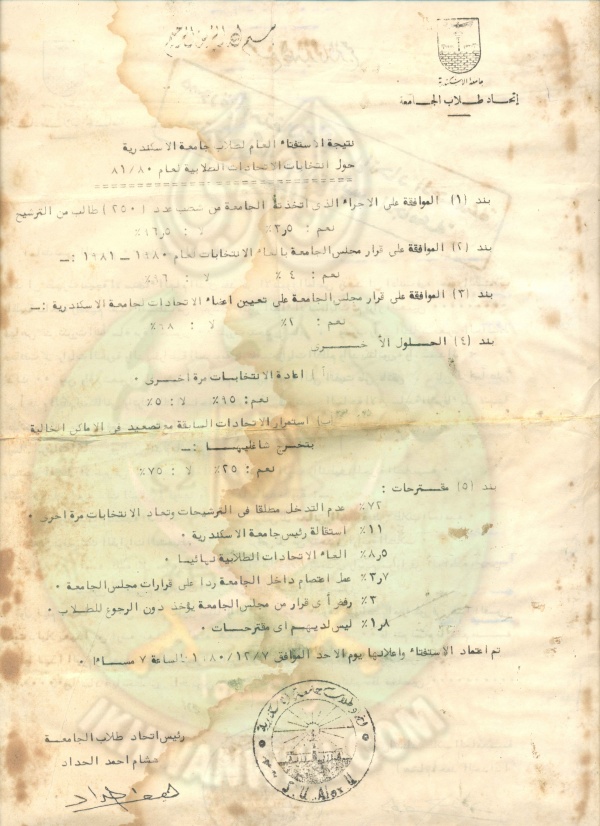 بسم الله الرحمن الرحيم
جامعة الاسكندرية
إتحاد طلاب الجامعة
نتيجة الاستفتاء العام لطلاب جامعة الاسكندرية
حول انتخابات الاتحادات الطلابية لعام ٨١/٨٠
بند (١) الموافقة على الاجراء الذى اتخذته الجامعة من شطب عدد (٢٥٠) طالب من الترشيح
نعم : ٣٫٥٪ لا : ٩٦٫٥٪
بند (٢) الموافقة على قرار مجلس الجامعة بالغاء الانتخابات لعام ١٩٨٠ ــ ١٩٨١ :ــ
نعم : ٤٪ لا : ٩٦٪
بند (٣) الموافقة على قرار مجلس الجامعة على تعيين اعضاء الاتحادات لجامعة الاسكندرية :ــ
نعم : ١٪ لا : ٩٨٪
بند (٤) الحلول الأخرى
أ) اعادة الانتخابات مرة أخرى ٠
نعم: ٩٥٪ لا : ٥٪
ب) استمرار الاتحادات السابقة مع تصعيد فى الاماكن الخالية
بتخرج شاغليها :ــ
نعم : ٢٥٪ لا : ٧٥٪
بند (٥) مقترحات :
٧٢٪ عدم التدخل مطلقا فى الترشيحات وتعاد الانتخابات مرة اخرى ٠
١١٪ استقالة رئيس جامعة الاسكندرية ٠
٨٫٥٪ الغاء الاتحادات الطلابية نهائيا ٠
٣٫٧٪ عمل اعتصام داخل الجامعة ردا على قرارات مجلس الجامعة ٠
٣٪ رفض أى قرار من مجلس الجامعة يؤخذ دون الرجوع للطلاب ٠
١٫٨٪ ليس لديهم اى مقترحات ٠
تم اعتماد الاستفتاء واعلانها يوم الاحد الموافق ١٩٨٠/١٢/٧ الساعة ٧ مساءا ٠
رئيس اتحاد طلاب الجامعة
هشام احمد الحداد
S. U. Alex U